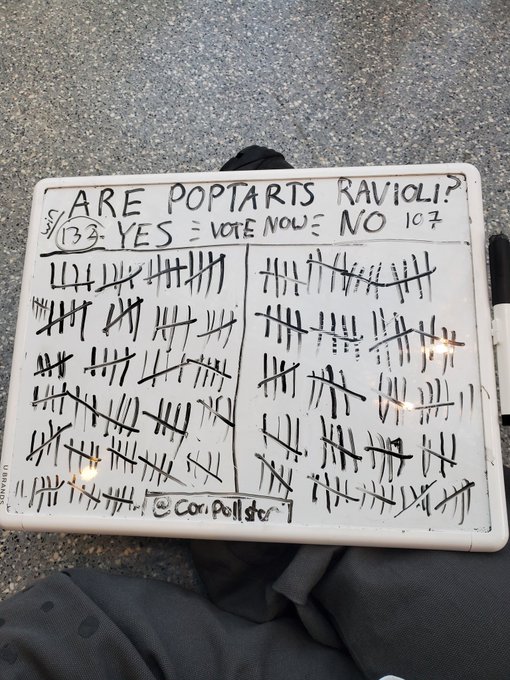 ARE POPTARTS RAVIOLI?
133 YES VOTE NOW NO 107
@ConPollster
U BRANDS